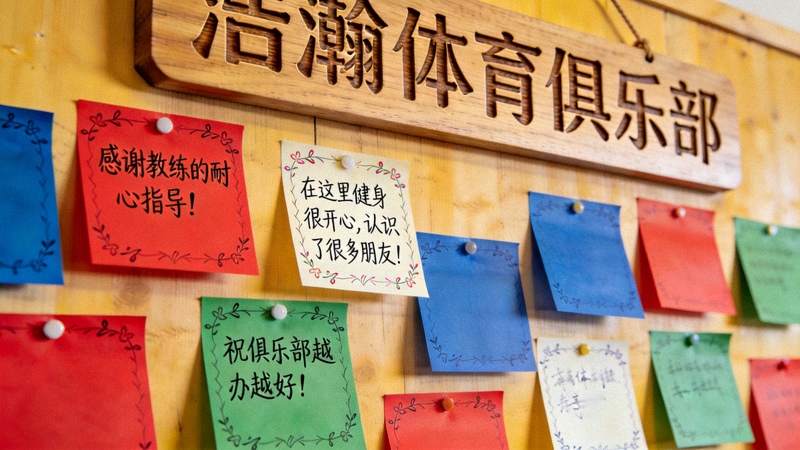 浩瀚体育俱乐部
感谢教练的耐
心指导!
在这里健身
很开心,认识
了很多朋友!
祝俱乐部越
办越好!